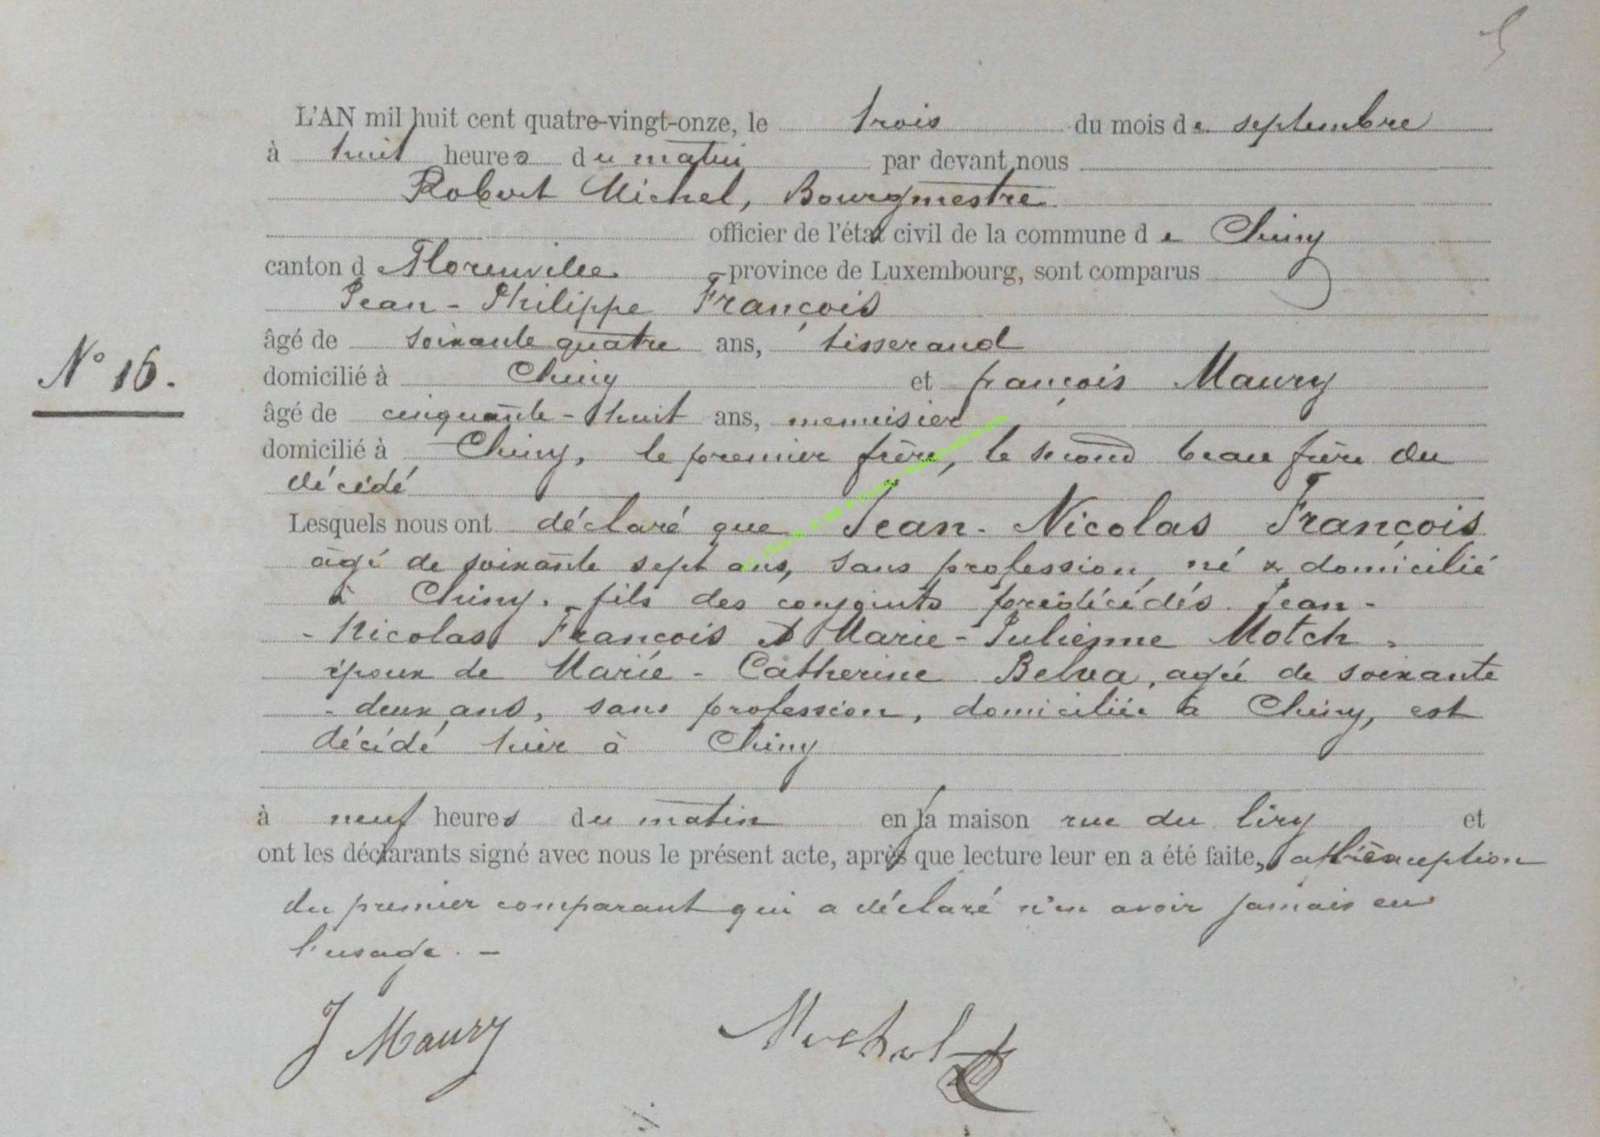 5
L'AN mil huit cent quatre-vingt-onze, le trois du mois de septembre
à huit heures du matin par devant nous
Robert Michel, Bourgmestre
officier de l'état civil de la commune de Chiny
canton d Florenville province de Luxembourg, sont comparus
Jean-Philippe François
âgé de soixante quatre ans, tisserand
N° 16.
domicilié à Chiny et françois Maury
âgé de cinquante-huit ans, menuisier
domicilié à Chiny, le premier frère, le second beau frère du
décédé
Lesquels nous ont déclaré que Jean-Nicolas François
âgé de soixante sept ans, sans profession, né & domicilié
à Chiny, fils des conjoints prédécédés Jean-
-Nicolas François & Marie-Julienne Motch,
époux de Marie-Catherine Belva, agée de soixante
-deux ans, sans profession, domiciliée à Chiny, est
décédé hier à Chiny
à neuf heures du matin en la maison rue du liry et
ont les déclarants signé avec nous le présent acte, après que lecture leur en a été faite, à l'exception
du premier comparant qui a déclaré n'en avoir jamais eu
l'usage. -
J Maury
Michel